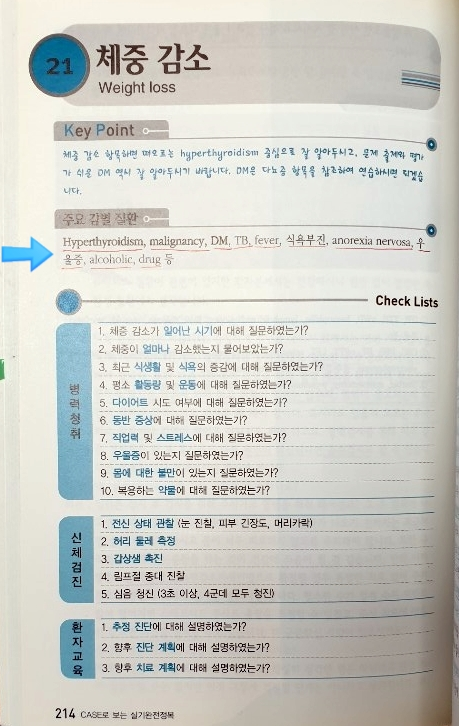 21
체중 감소
Weight loss
Key Point
체중 감소 항목하면 떠오르는 hyperthyroidism 중심으로 잘 알아두시고, 문제 출제와 평가
가 쉬운 DM 역시 잘 알아두시기 바랍니다. DM은 다뇨증 항목을 참고하여 연습하시면 되겠습
니다.
주요 감별 질환
Hyperthyroidism, malignancy, DM, TB, fever, 식욕부진, anorexia nervosa, 우
울증, alcoholic, drug 등
Check Lists
병력청취
1. 체중 감소가 일어난 시기에 대해 질문하였는가?
2. 체중이 얼마나 감소했는지 물어보았는가?
3. 최근 식생활 및 식욕의 증감에 대해 질문하였는가?
4. 평소 활동량 및 운동에 대해 질문하였는가?
5. 다이어트 시도 여부에 대해 질문하였는가?
6. 동반 증상에 대해 질문하였는가?
7. 직업력 및 스트레스에 대해 질문하였는가?
8. 우울증이 있는지 질문하였는가?
9. 몸에 대한 불만이 있는지 질문하였는가?
10. 복용하는 약물에 대해 질문하였는가?
신체검진
1. 전신 상태 관찰 (눈 진찰, 피부 긴장도, 머리카락)
2. 허리 둘레 측정
3. 갑상샘 촉진
4. 림프절 종대 진찰
5. 심음 청진 (3초 이상, 4군데 모두 청진)
환자교육
1. 추정 진단에 대해 설명하였는가?
2. 향후 진단 계획에 대해 설명하였는가?
3. 향후 치료 계획에 대해 설명하였는가?
214 CASE로 보는 실기완전정복